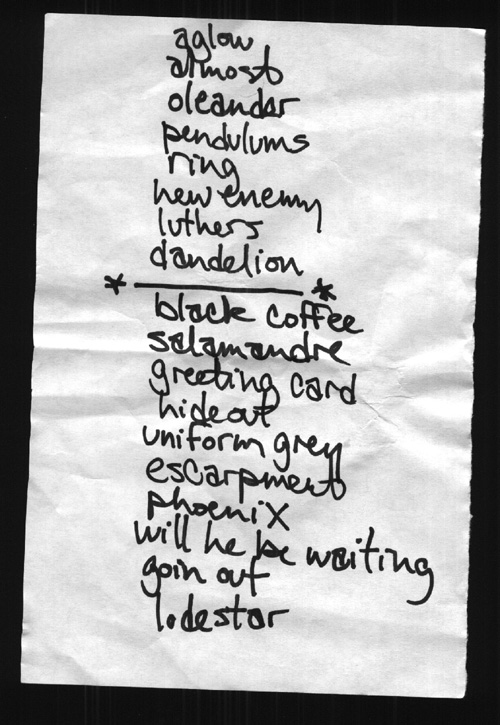 aglow
almost
oleander
pendulums
ring
new enemy
luthers
dandelion
* *
black coffee
salamandre
greeting card
hideout
uniform grey
escarpment
phoenix
will he be waiting
goin out
lodestar